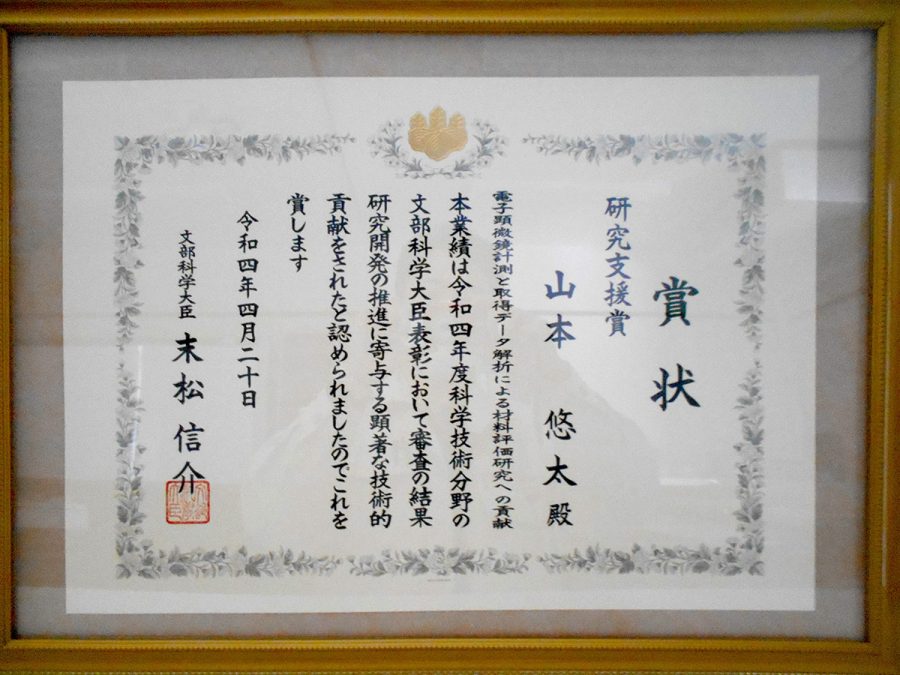 賞状
研究支援賞
山本 悠太 殿
電子顕微鏡計測と取得データ解析による材料評価研究への貢献
本業績は令和四年度科学技術分野の
文部科学大臣表彰において審査の結果
研究開発の推進に寄与する顕著な技術的
貢献をされたと認められましたのでこれを
賞します
令和四年四月二十日
文部科学大臣 末松信介